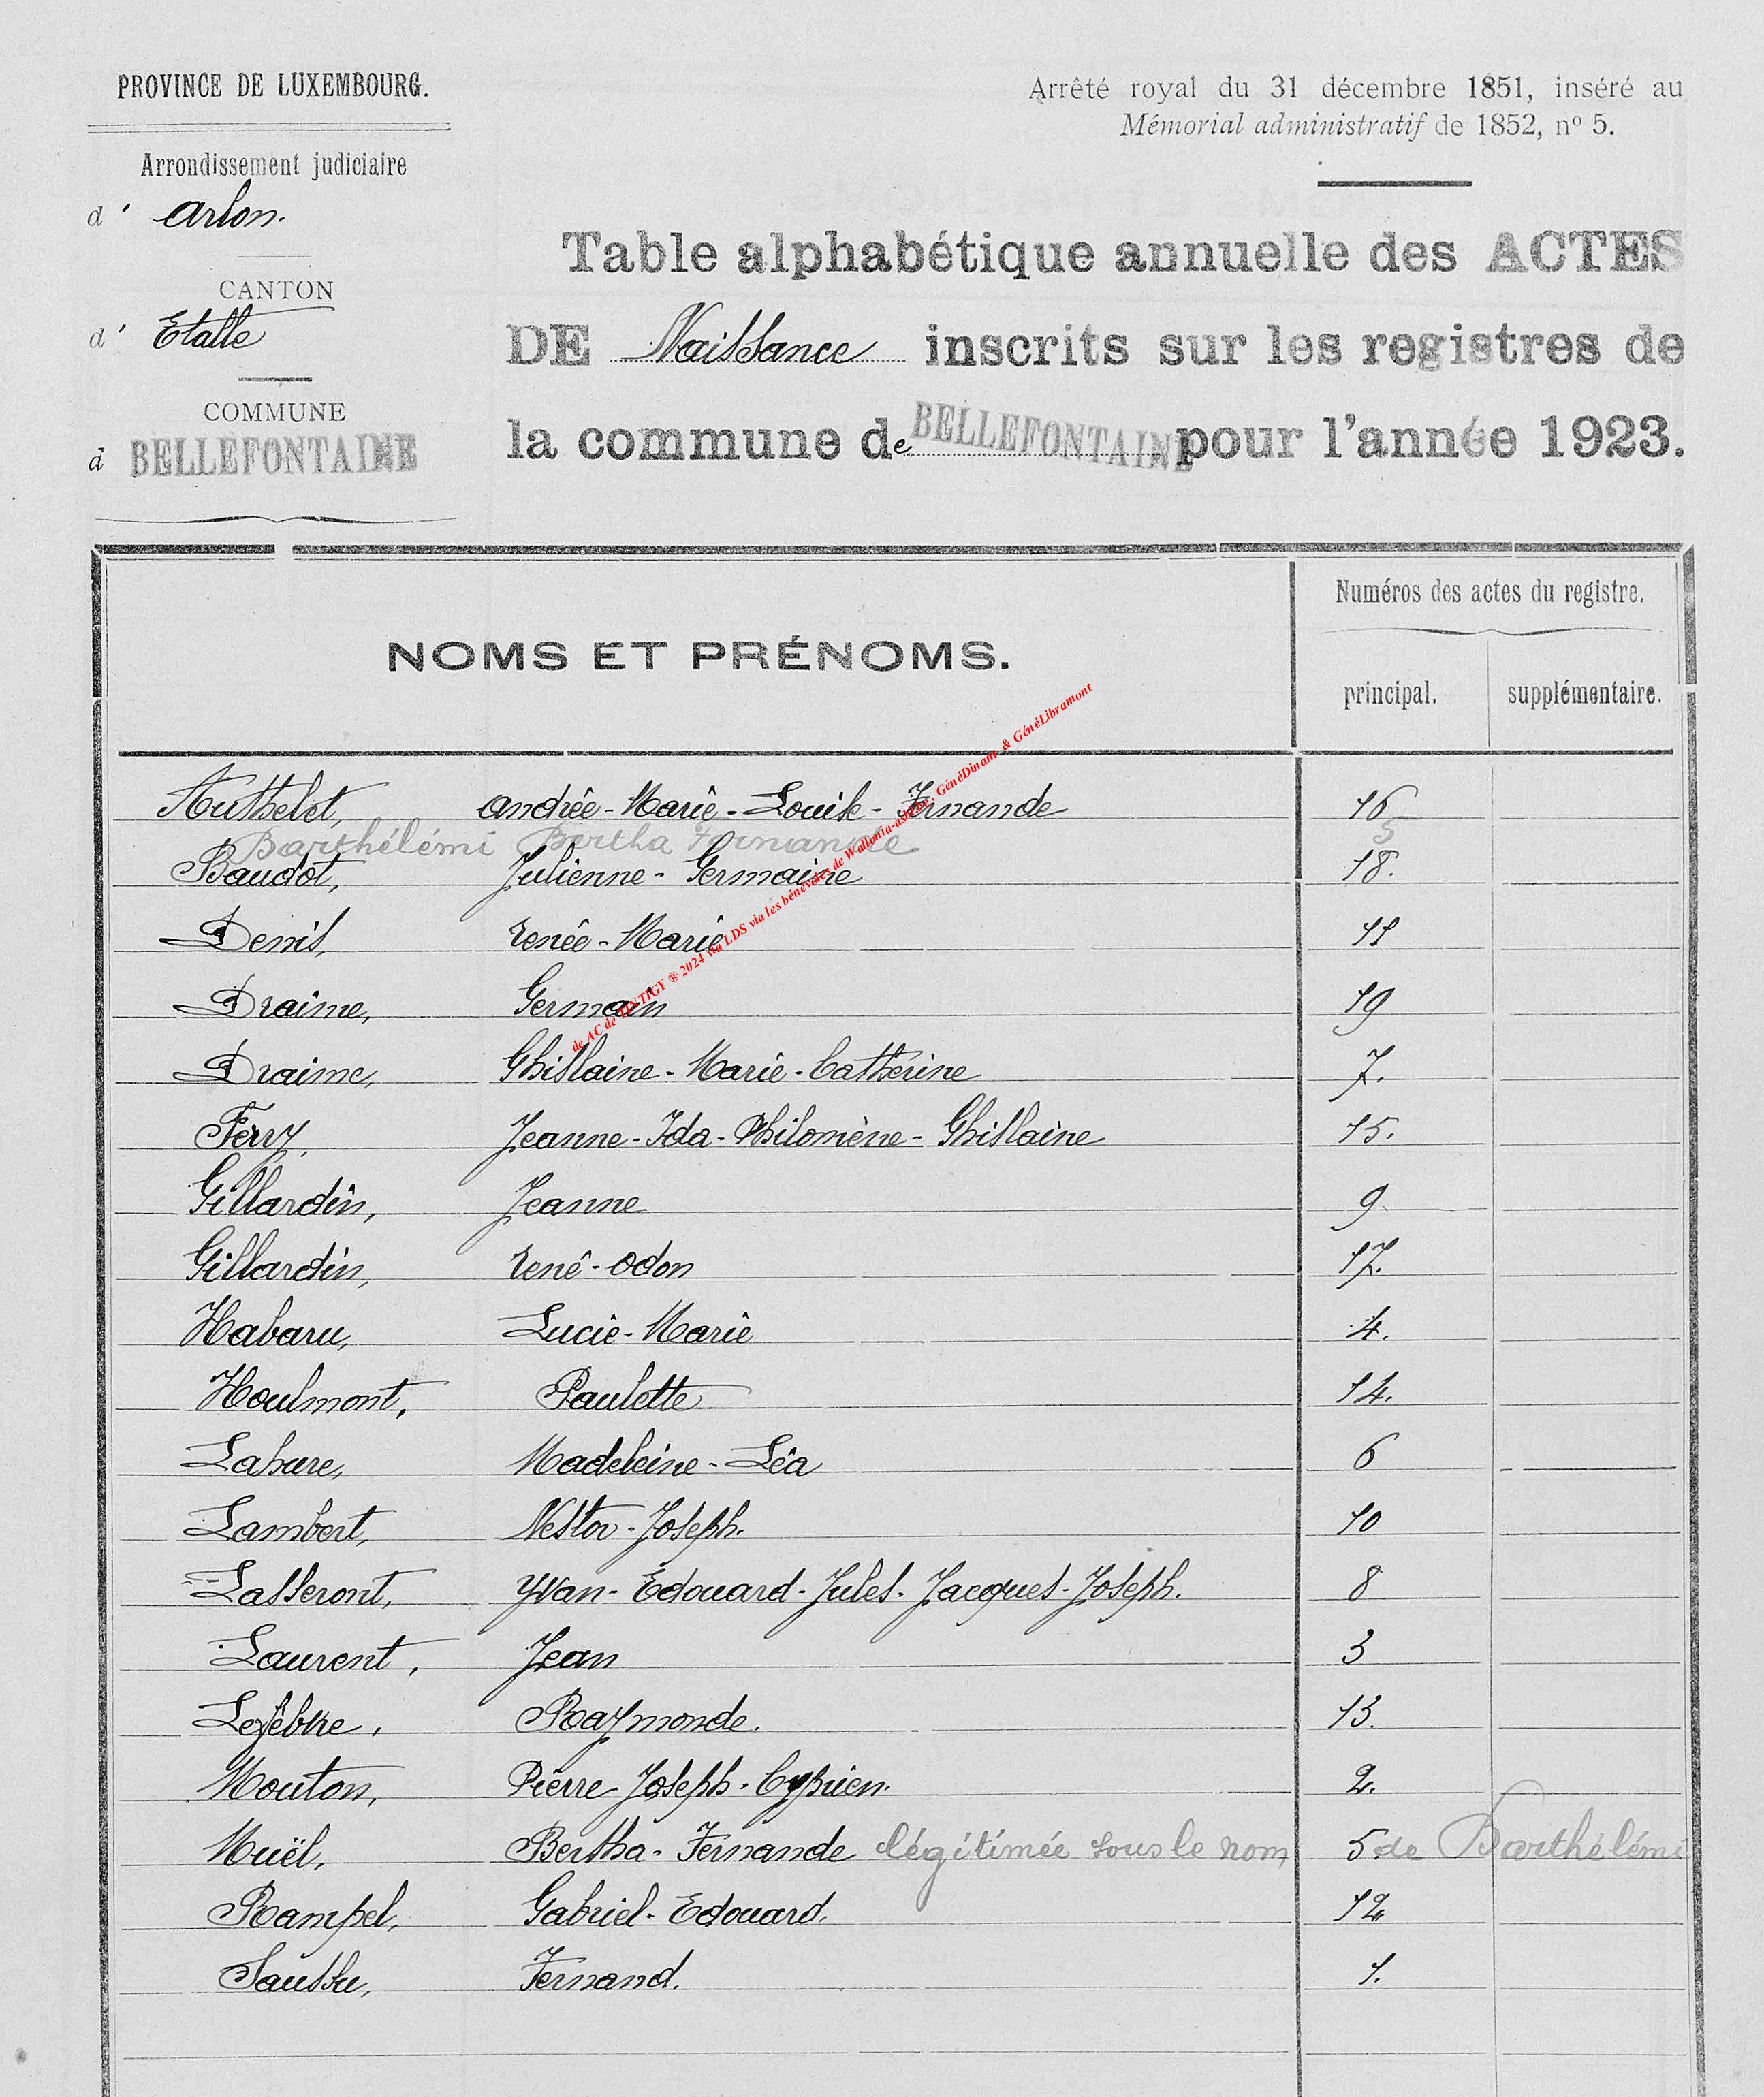 PROVINCE DE LUXEMBOURG.
Arrondissement judiciaire
d' Arlon.
CANTON
d' Etalle
COMMUNE
d BELLEFONTAINE
Arrêté royal du 31 décembre 1851, inséré au
Mémorial administratif de 1852, nº 5.
Table alphabétique annuelle des ACTES
DE Naissance inscrits sur les registres de
la commune de BELLEFONTAINE pour l'année 1923.
NOMS ET PRÉNOMS.
Numéros des actes du registre.
principal. supplémentaire.
Authelet, Andrée-Marie-Louise-Fernande 16
Barthélémi Bertha Fernande 5
Baudot, Julienne-Germaine 18.
Denis, Renée-Marie 11
Draime, Germain 19
Draime, Ghislaine-Marie-Catherine 7.
Ferry, Jeanne-Ida-Philomène-Ghislaine 15.
Gillardin, Jeanne 9.
Gillardin, René-Odon 17.
Habaru, Lucie-Marie 4.
Houlmont, Paulette 14.
Lahure, Madeleine-Léa 6
Lambert, Nestor-Joseph. 10
Lasseront, Yvan-Edouard-Jules-Jacques-Joseph. 8
Laurent, Jean 3
Lefèbvre, Raymonde. 13.
Mouton, Pierre-Joseph-Cyprien. 2.
Muël, Bertha-Fernande légitimée sous le nom 5 de Barthélémi
Rampel, Gabriel-Edouard. 12
Saussu, Fernand. 1.
de AC de TINTIGY ® 2024 via LDS via les bénévoles de Wallonia-asbl de GénéDinant & GénéLibramont